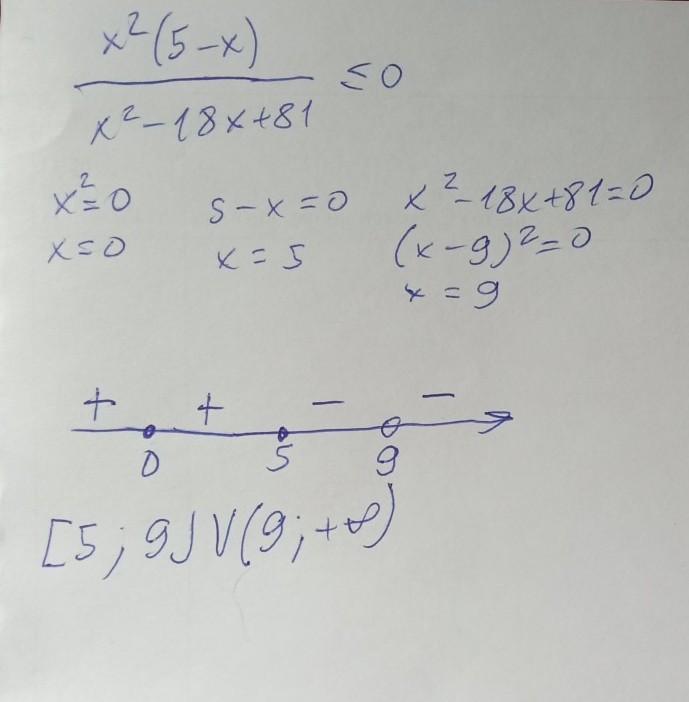 x²(5-x)
x²-18x+81
≤0
x²=0 5-x=0 x²-18x+81=0
x=0 x=5 (x-9)²=0
x=9
+ + - -
0 5 9
[5; 9]∨(9;+∞)